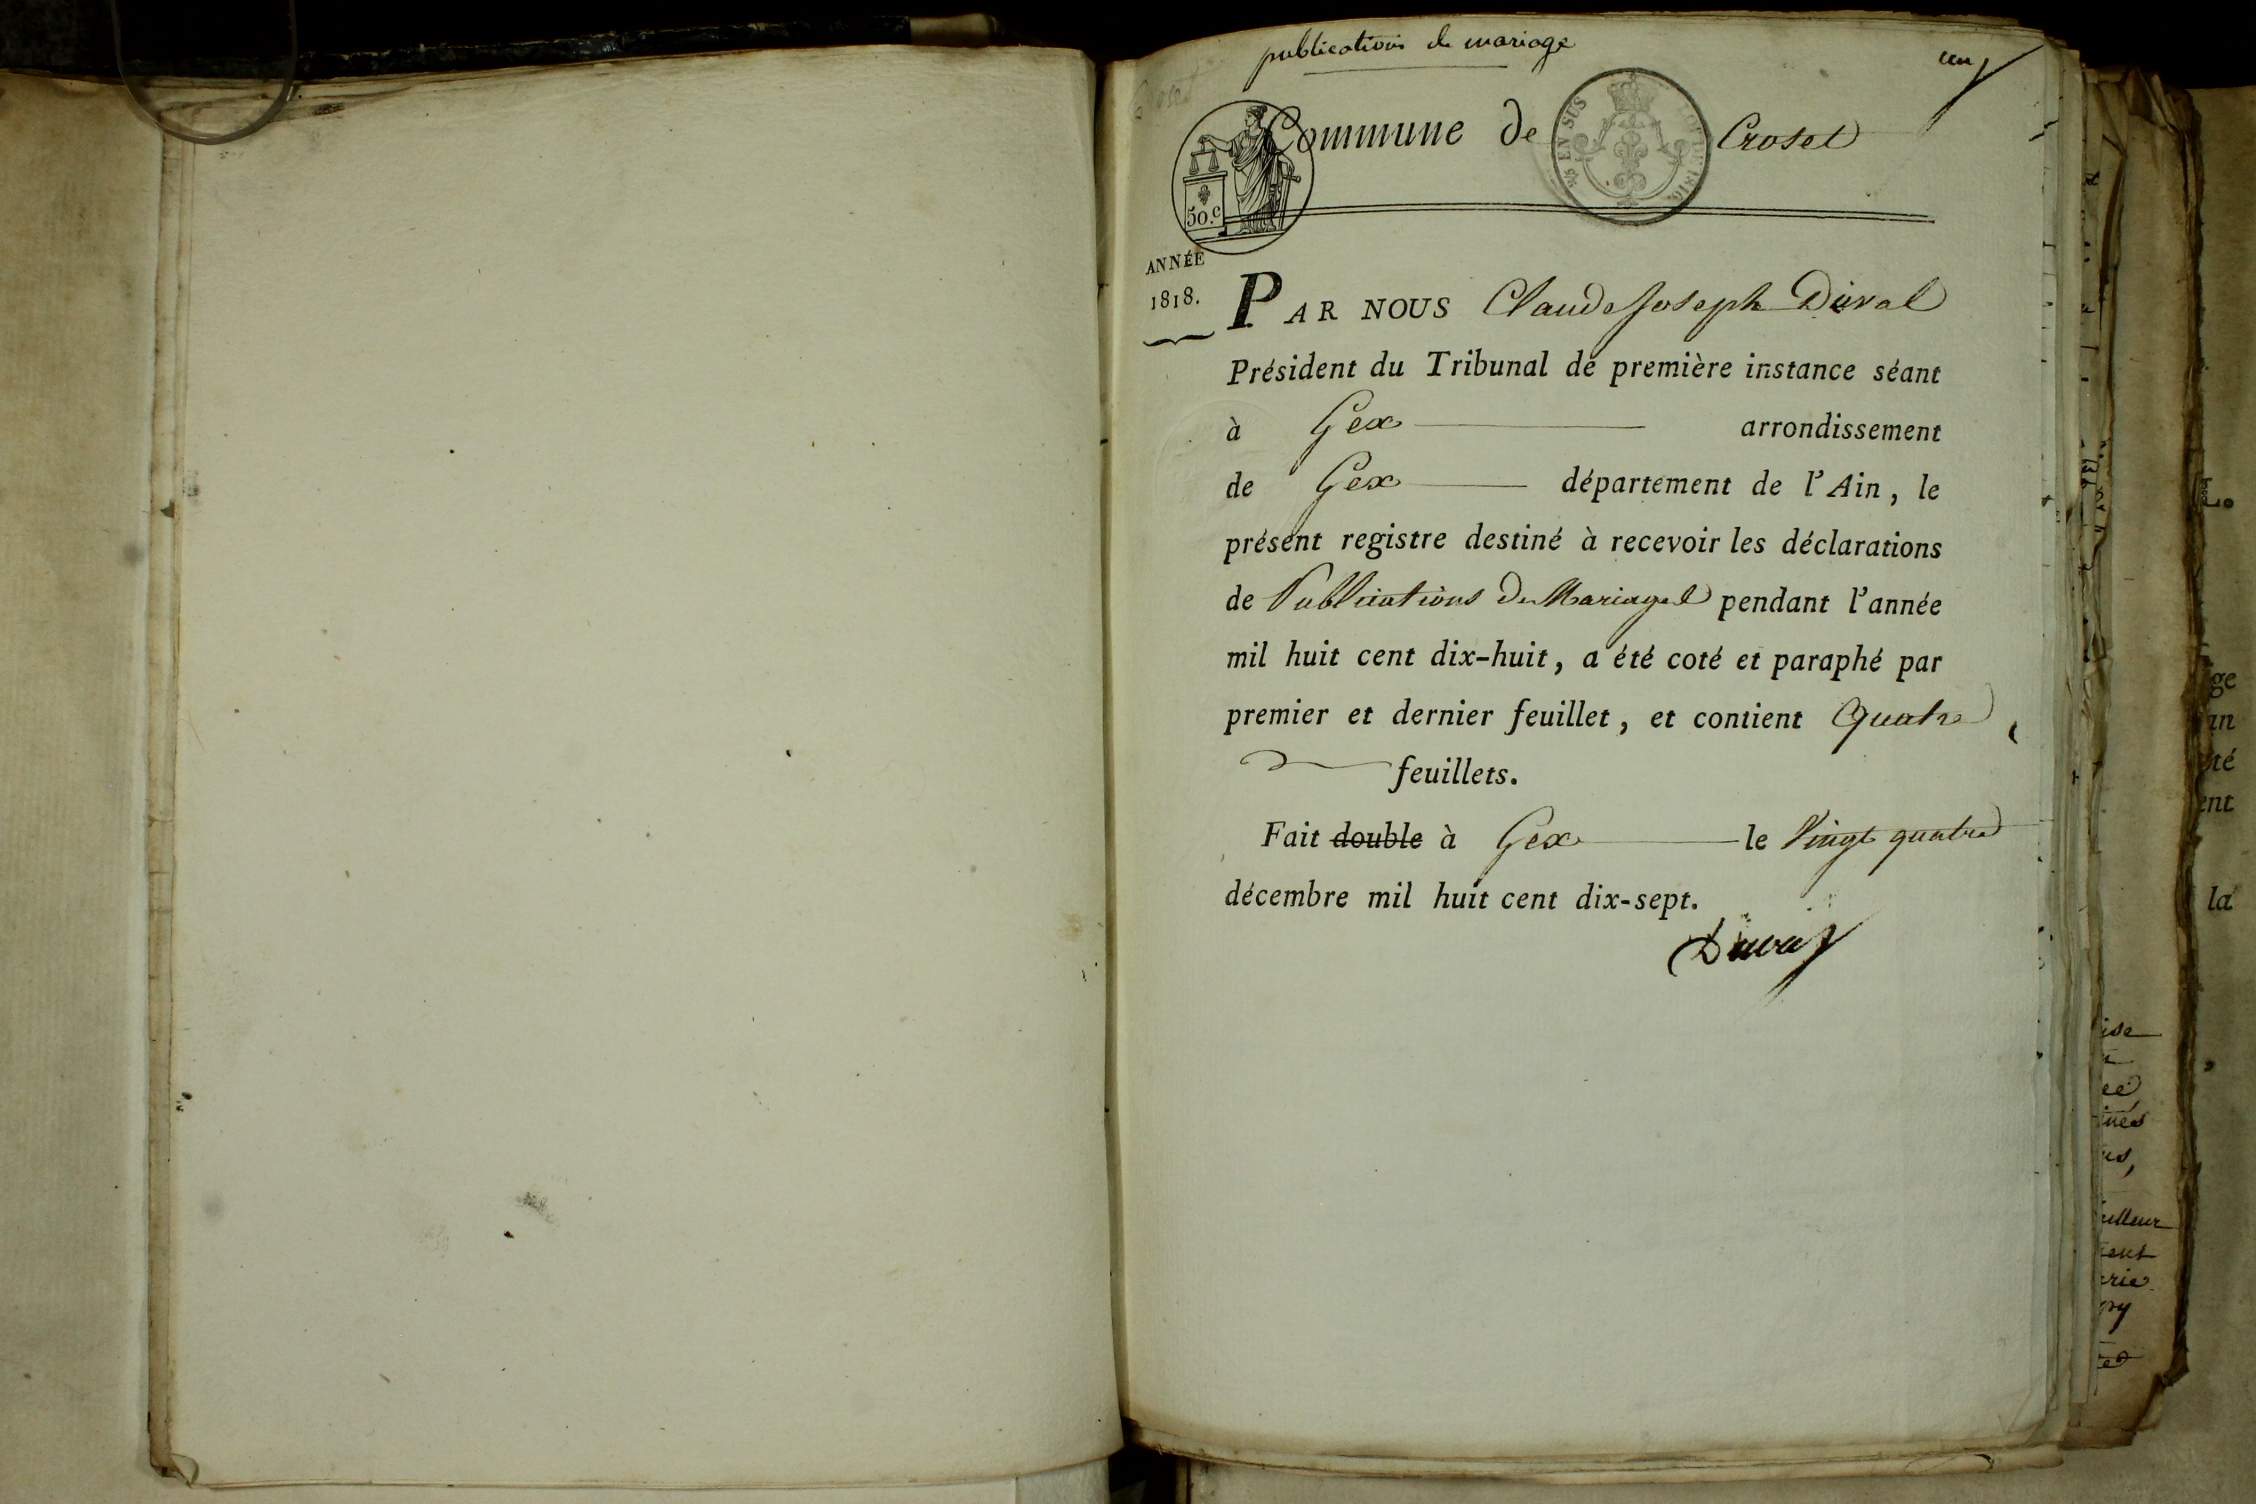 publications de mariage
un
Commune de Croset
EN SUS
1816.
50.c
ANNÉE
1818.
PAR NOUS Claude Joseph Duval
Président du Tribunal de première instance séant
à Gex arrondissement
de Gex département de l'Ain, le
présent registre destiné à recevoir les déclarations
de Publications de Mariages pendant l'année
mil huit cent dix-huit, a été coté et paraphé par
premier et dernier feuillet, et contient quatre
feuillets.
Fait double à Gex le Vingt quatre
décembre mil huit cent dix-sept.
Duval